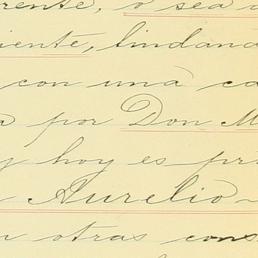 rente, o sea a
iente, lindand
con una ca
por Don M
y hoy es pri
Aurelio
n otras cons